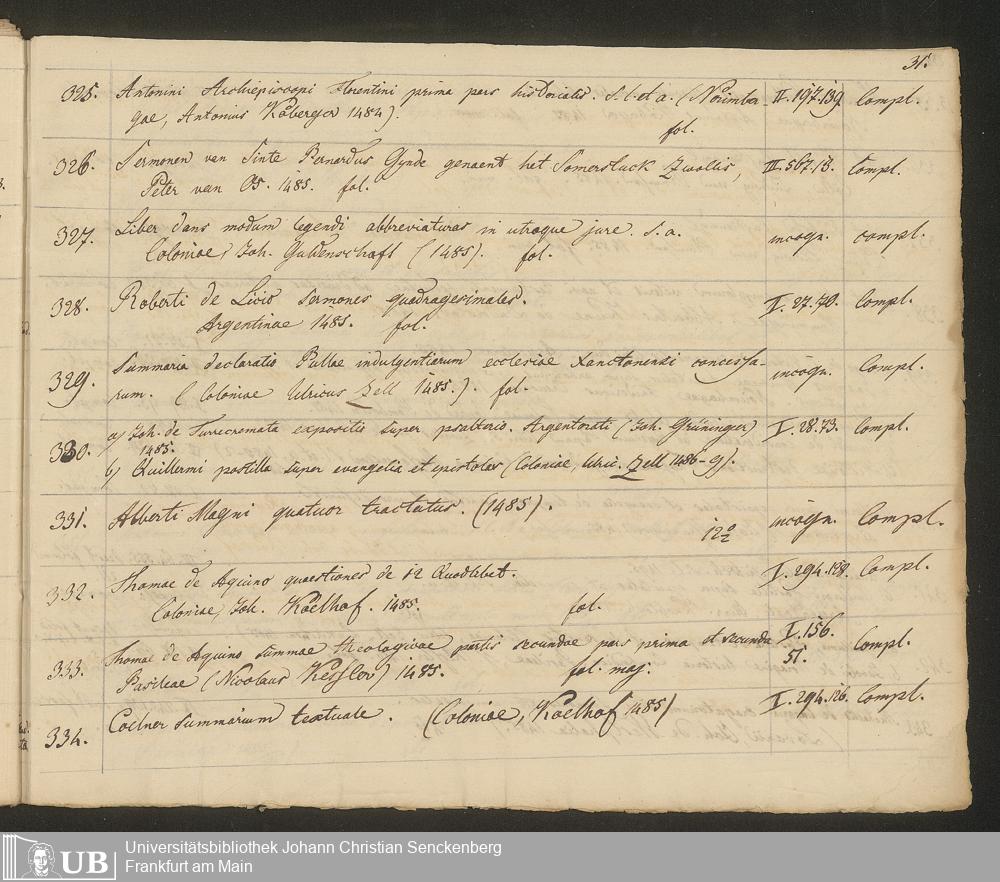 31.
325. Antonini Archiepiscopi Florentini prima pars historialis. S. l. et a. (Nürimber- II. 197. 139 Compl.
gae, Antonius Köberger 1484).
fol.
326. Sermonen van Sinte Bernardus Gynde genaemt het Somerstuck Zwollis, III. 567. 13. Compl.
Peter van Os. 1485. fol.
327. Liber dans modum legendi abbreviaturas in utroque jure. S. a. incogn. compl.
Coloniae, Joh. Guldenschaff (1485). fol.
328. Roberti de Licio Sermones quadragesimales. II. 27. 70. Compl.
Argentinae 1485. fol.
329. Summaria declaratio Bullae indulgentiarum ecclesiae Xanctonensi concessa- incogn. Compl.
rum. (Coloniae Ulricus Zell 1485.). fol.
330. a) Joh. de Turrecremata expositio super psalterio. Argentorati (Joh. Grüninger) I. 28. 73. Compl.
1485.
b) Guillermi postilla super evangelia et epistolas (Coloniae, Ulric. Zell 1486-9).
331. Alberti Magni quatuor tractatus. (1485). incogn. Compl.
12º
332. Thomae de Aquino quaestiones de 12 Quodlibet. I. 294. 129. Compl.
Coloniae, Joh. Köelhof. 1485. fol.
333. Thomae de Aquino summae theologicae partis secundae pars prima et secunda I. 156. Compl.
51.
Basileae (Nicolaus Kessler) 1485. fol. maj.
334. Coelner Summarium textuale. (Coloniae, Köelhof 1485) I. 294. 126. Compl.
UB
Universitätsbibliothek Johann Christian Senckenberg
Frankfurt am Main